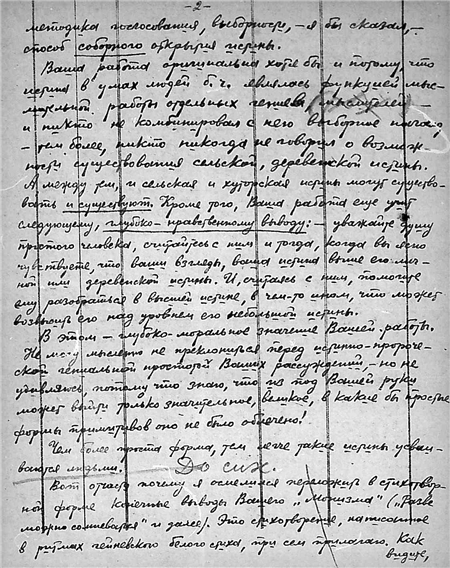 -2-
методика голосования, выборности, – я бы сказал, –
способ соборного открытия истины.
Ваша работа оригинальна хотя бы и потому, что
истина в умах людей б. ч. являлась функцией мыс-
лительной работы отдельных гениев, мыслителей –
и никто не комбинировал с него выборное начало,
– тем более, никто никогда не говорил о возмож-
ности существования сельской, деревенской истины.
А между тем, и сельская и хуторская истины могут существо-
вать и существуют. Кроме того, Ваша работа еще учит
следующему, глубоко-нравственному выводу: – уважайте душу
простого человека, считайтесь с ним и тогда, когда вы ясно
чувствуете, что ваши взгляды, ваша истина выше его лич-
ной или деревенской истины. И, считаясь с ним, помогите
ему разобраться в высшей истине, в чем-то ином, что может
возвысить его над уровнем его небольшой истины.
В этом – глубоко-моральное значение Вашей работы.
Не могу мысленно не преклониться перед истинно-пророче-
ской гениальной простотой Ваших рассуждений, – но не
удивляюсь, потому что знаю, что из под Вашей руки
может выйти только значительное, великое, в какие бы простые
формы примитивов оно не было облечено!
Чем более проста форма, тем легче такие истины усваи-
ваются людьми. До сих.
Вот отчасти почему я осмелился переложить в стихотвор-
ной форме конечные выводы Вашего „Монизма" („Разве
можно сомневаться" и далее). Это стихотворение, написанное
в ритмах гейневского белого стиха, при сем прилагаю. Как
видите,